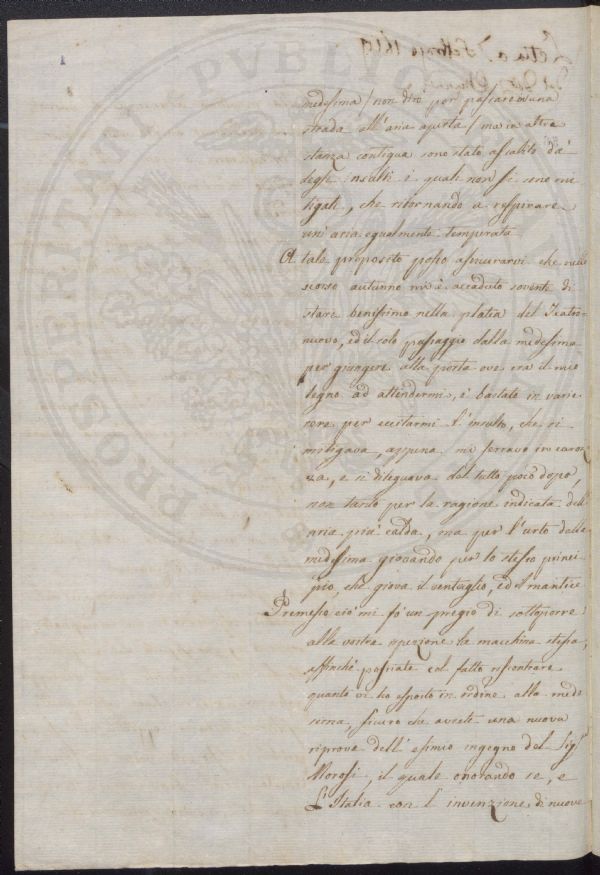 1
Letta a 7 Febbrajo 1819
medesima / non dirò per passare in una
strada all'aria aperta / ma in altra
stanza contigua sono stato assalito da'
degli insulti i quali non si sono mi
tigati, che ritornando a respirare
un'aria egualmente temperata
A tale proposito posso assicurarvi che nello
scorso autunno mi è accaduto sovente di
stare benissimo nella platea del Teatro
nuovo, ed il solo passaggio dalla medesima
per giungere alla porta ove era il mio
legno ad attendermi, è bastato in varie
sere per eccitarmi l'insulto, che si
mitigava, appena mi serravo in caroz
za, e si dileguava del tutto poco dopo,
non tanto per la ragione indicata dell'
aria più calda, ma per l'urto della
medesima giovando per lo stesso princi
pio, che giova il ventaglio, ed il mantice
Premesso ciò mi fo' un pregio di sottoporre
alla vostra ispezione la macchina stessa,
affinché possiate col fatto riscontrare
quanto vi ho esposto in ordine alla mede
sima, sicuro che avrete una nuova
riprova dell'esimio ingegno del Sigr
Morosi, il quale onorando se, e
L'Italia con l'invenzione di nuove
PROSPERITATI PVBLICAE